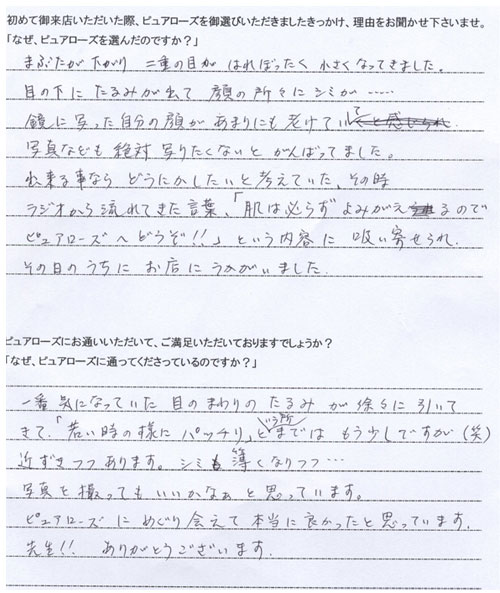 初めて御来店いただいた際、ピュアローズを御選びいただきましたきっかけ、理由をお聞かせ下さいませ。
「なぜ、ピュアローズを選んだのですか？」
まぶたが下がり 二重の目が はれぼったく 小さくなってきました。
目の下に たるみが出て 顔の所々に シミが ‥‥‥
鏡に写った自分の顔が あまりにも老けていて
写真なども絶対 写りたくないと がんばってました。
出来る事なら どうにかしたいと考えていた、その時
ラジオから流れてきた言葉、「肌は必らず よみがえるので
ピュアローズへどうぞ!!」という内容に 吸い寄せられ、
その日のうちに お店に うかがいました。
ピュアローズにお通いいただいて、ご満足いただいておりますでしょうか？
「なぜ、ピュアローズに通ってくださっているのですか？」
一番 気になっていた 目のまわりの たるみ が 徐々に 引いて
きて、「若い時の様に パッチリ」という所までは もう少しですが（笑）
近ずきつつ あります。シミも 薄くなりつつ…
写真を撮ってもいいかなぁと思っています。
ピュアローズ に めぐり会えて 本当に良かったと思っています。
先生!! ありがとうございます。